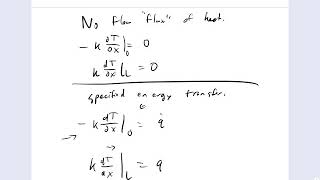 No flow "flux" of heat.
- k ∂T/∂x |₀ = 0
k ∂T/∂x |L = 0
specified energy transfer.
- k ∂T/∂x |₀ = q̇
→
k ∂T/∂x |L = q